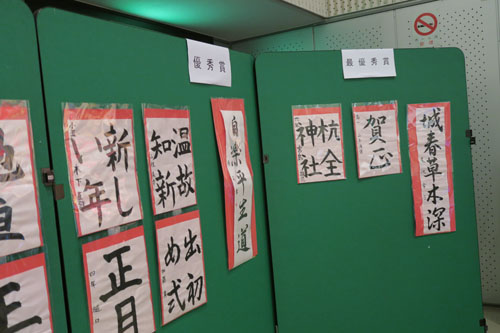 優秀賞
新し
い年
温故
知新
自樂平生道
正月
出初
め式
最優秀賞
杭全
神社
賀正
城春草木深